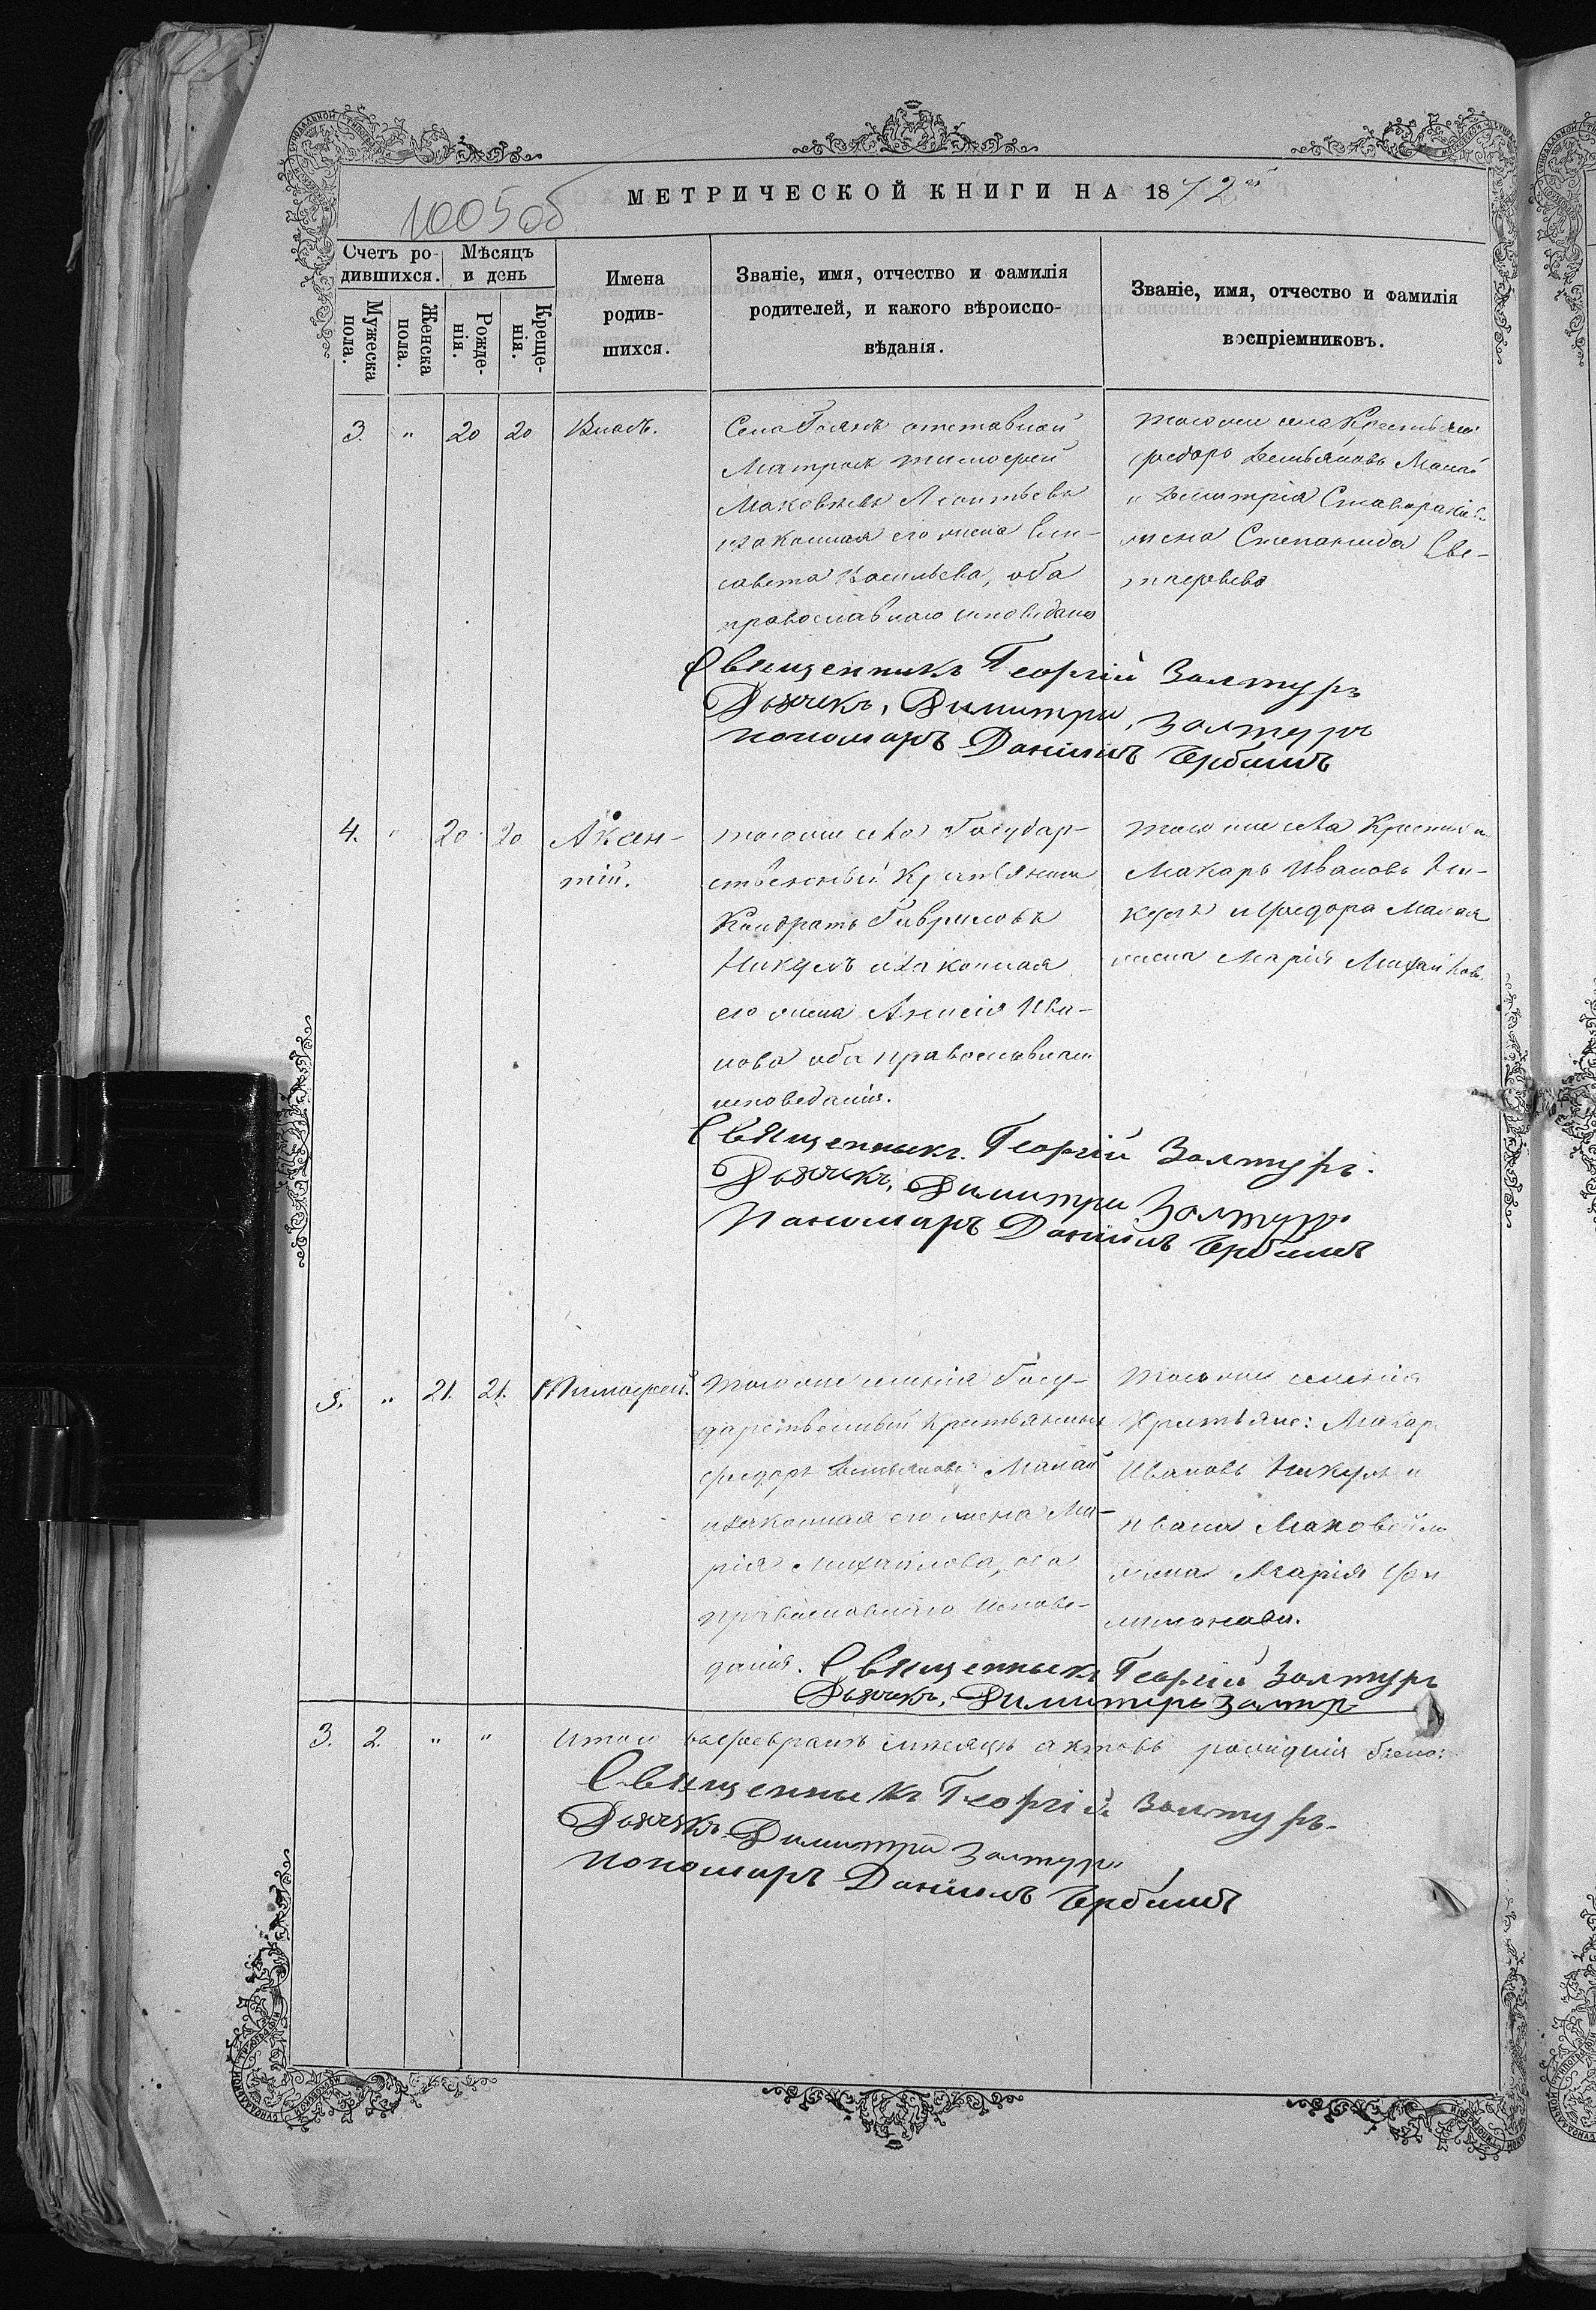 1005 об
МЕТРИЧЕСКОЙ КНИГИ НА 1872й
Счетъ ро-
дившихся.
Мужеска
пола.
Женска
пола.
Мѣсяцъ
и день
Рожде-
нія.
Креще-
нія.
Имена
родив-
шихся.
Званіе, имя, отчество и фамилія
родителей, и какого вѣроиспо-
вѣданія.
Званіе, имя, отчество и фамилія
воспріемниковъ.
3. " 20 20 Владъ.
Села Гоянъ отставной
Матросъ Тимофей
Леонтьевъ
изаконная его жена Ели-
савета Васильева, оба
православнаго исповеданія
тогоже села Крестьяне
Федоръ Малай
и Димитрія
жена Степанида Еве-
Священникъ Георгій Золтуръ
Дьячекъ, Димитри, Золтуръ
пономаръ Даніилъ
4. " 20 20 Аксен-
тій.
тогоже села Государ-
ственный Крестьянин
Кондратъ Гавриловъ
Никулъ изаконная
его жена Анисія Ива-
нова оба православнаго
исповеданія.
тогоже села Крестьяне
Макаръ Ивановъ Ни-
кулъ и Федора Малая
жена Марія
Священникъ Георгій Золтуръ.
Дьячекъ, Димитри Золтуръ
Пономаръ Даніилъ
5. " 21. 21. Тимофей.
тогоже селенія Госу-
дарственный Крестьянинъ
Федоръ Малай
изаконная его жена Ма-
рія Михайлова, оба
православнаго испове-
данія.
тогоже селенія
Крестьяне: Макар
Ивановъ Никулъ и
Ивана
жена Марія Фи-
Священникъ Георгій Золтуръ
Дьячекъ, Димитиръ Золтуръ
3. 2. " " Итого вафевралъ месяцъ актовъ рожидния
Священникъ Георгій Золтуръ
Дьячекъ Димитри Золтуръ
пономаръ Даніилъ